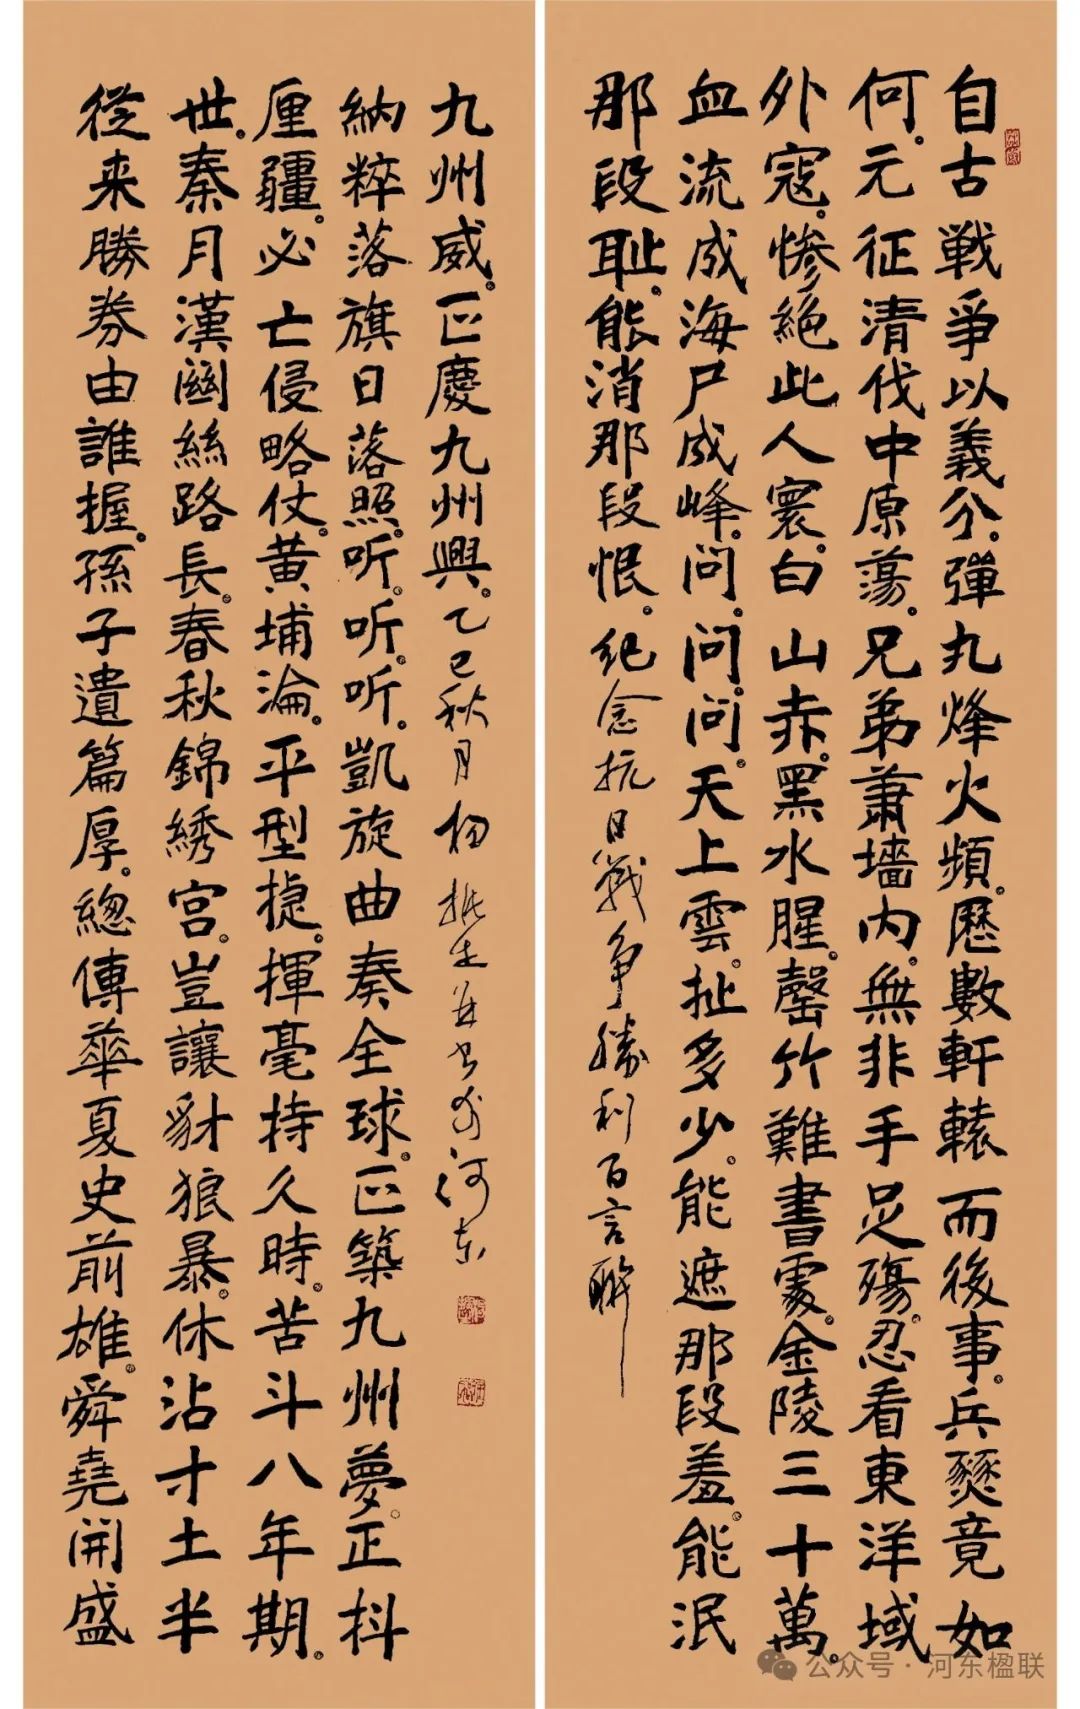 自古戦爭以義分。彈丸烽火頻。歷數軒轅而後事。兵燹竟如
何。元征清伐中原蕩。兄弟蕭墻内。無非手足殤。忍看東洋域
外寇。惨絶此人寰。白山赤。黑水腥。罄竹難書處。金陵三十萬。
血流成海尸成峰。问。问。问。天上雲。扯多少。能遮那段羞。能泯
那段耻。能消那段恨。纪念抗日戰争勝利百言聯
從来勝券由誰握。孫子遺篇厚。總傳華夏史前雄。舜堯開盛
世。秦月漢關絲路長。春秋錦綉宫。豈讓豺狼暴。休沾寸土半
厘疆。必亡侵略仗。黄埔淪。平型捷。揮毫持久時。苦斗八年期。
納粹落旗日落照。听。听。听。凱旋曲奏全球。正築九州夢。正抖
九州威。正慶九州興。乙巳秋月杨振生并书於河东
公众号·河东楹联